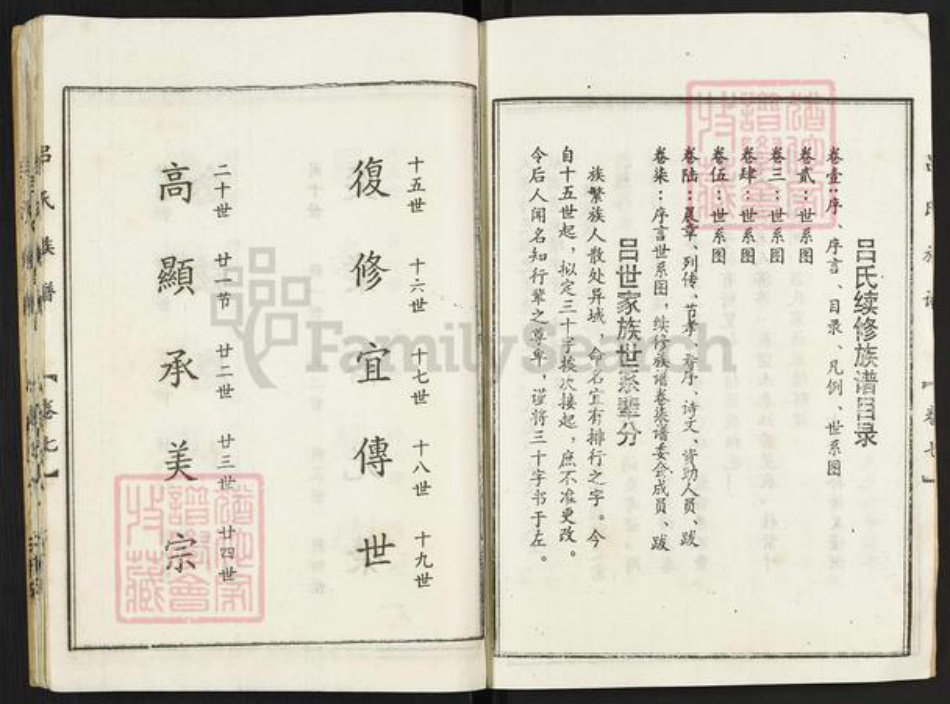 吕氏续修族谱目录
卷壹：序、序言、目录、凡例、世系图
卷贰：世系图
卷三：世系图
卷肆：世系图
卷伍：世系图
卷陆：展章、列传、节孝、寿序、诗文、资助人员、跋
卷柒：序言世系图，续修族谱卷柒谱委会成员、跋
吕世家族世系辈分
族繁族人散处异域、命名宜有排行之字。今
自十五世起，拟定三十字挨次接起，庶不准更改。
令后人闻名知行辈之尊卑，谨将三十字书于左。
十五世 十六世 十七世 十八世 十九世
復 修 宜 傳 世
二十世 廿一节 廿二世 廿三世 廿四世
高 顯 承 美 宗
吕氏族谱
【卷七】
FamilySearch